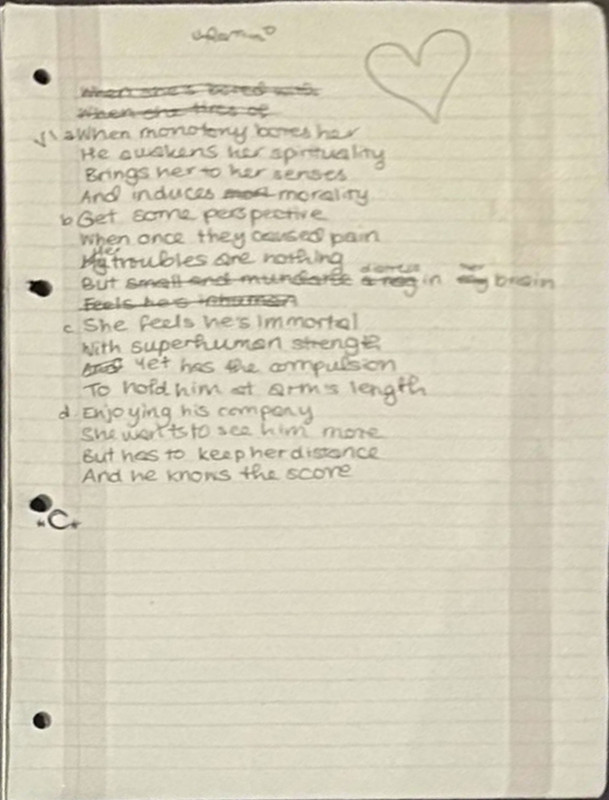 When she's bored with
When she tires of
V1 a When monotony bores her
He awakens her spirituality
Brings her to her senses
And induces morality
b Get some perspective
When once they caused pain
Her
My troubles are nothing
But small and mundane distress in her my brain
Feels he's inhuman
c She feels he's immortal
With superhuman strength
And yet has the compulsion
To hold him at arm's length
d Enjoying his company
She wants to see him more
But has to keep her distance
And he knows the score
"C"